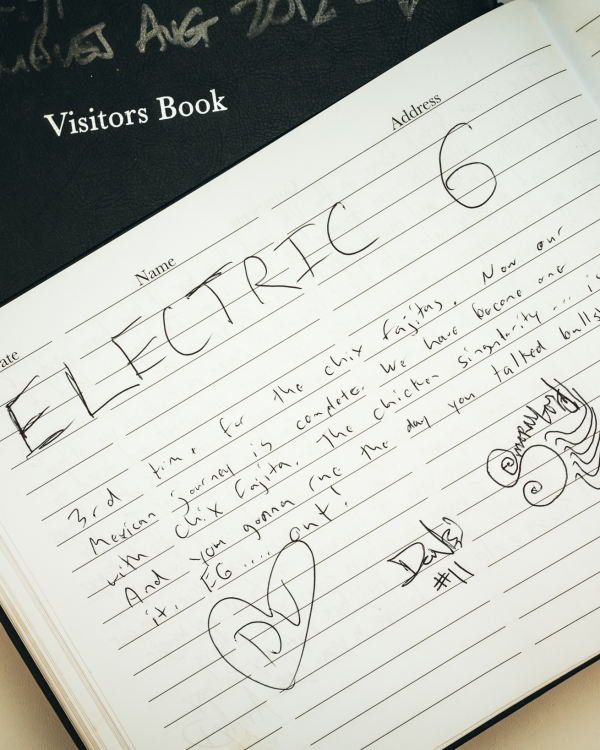 AUG 2012
Visitors Book
Address
Name
ate
ELECTRIC 6
3rd time for the chix fajitas. Now our
Mexican journey is complete. We have become one
with chix fajita. The chicken singularity... is
And you gonna rue the day you talked bullsh
it. E6.... out!
DV
#11